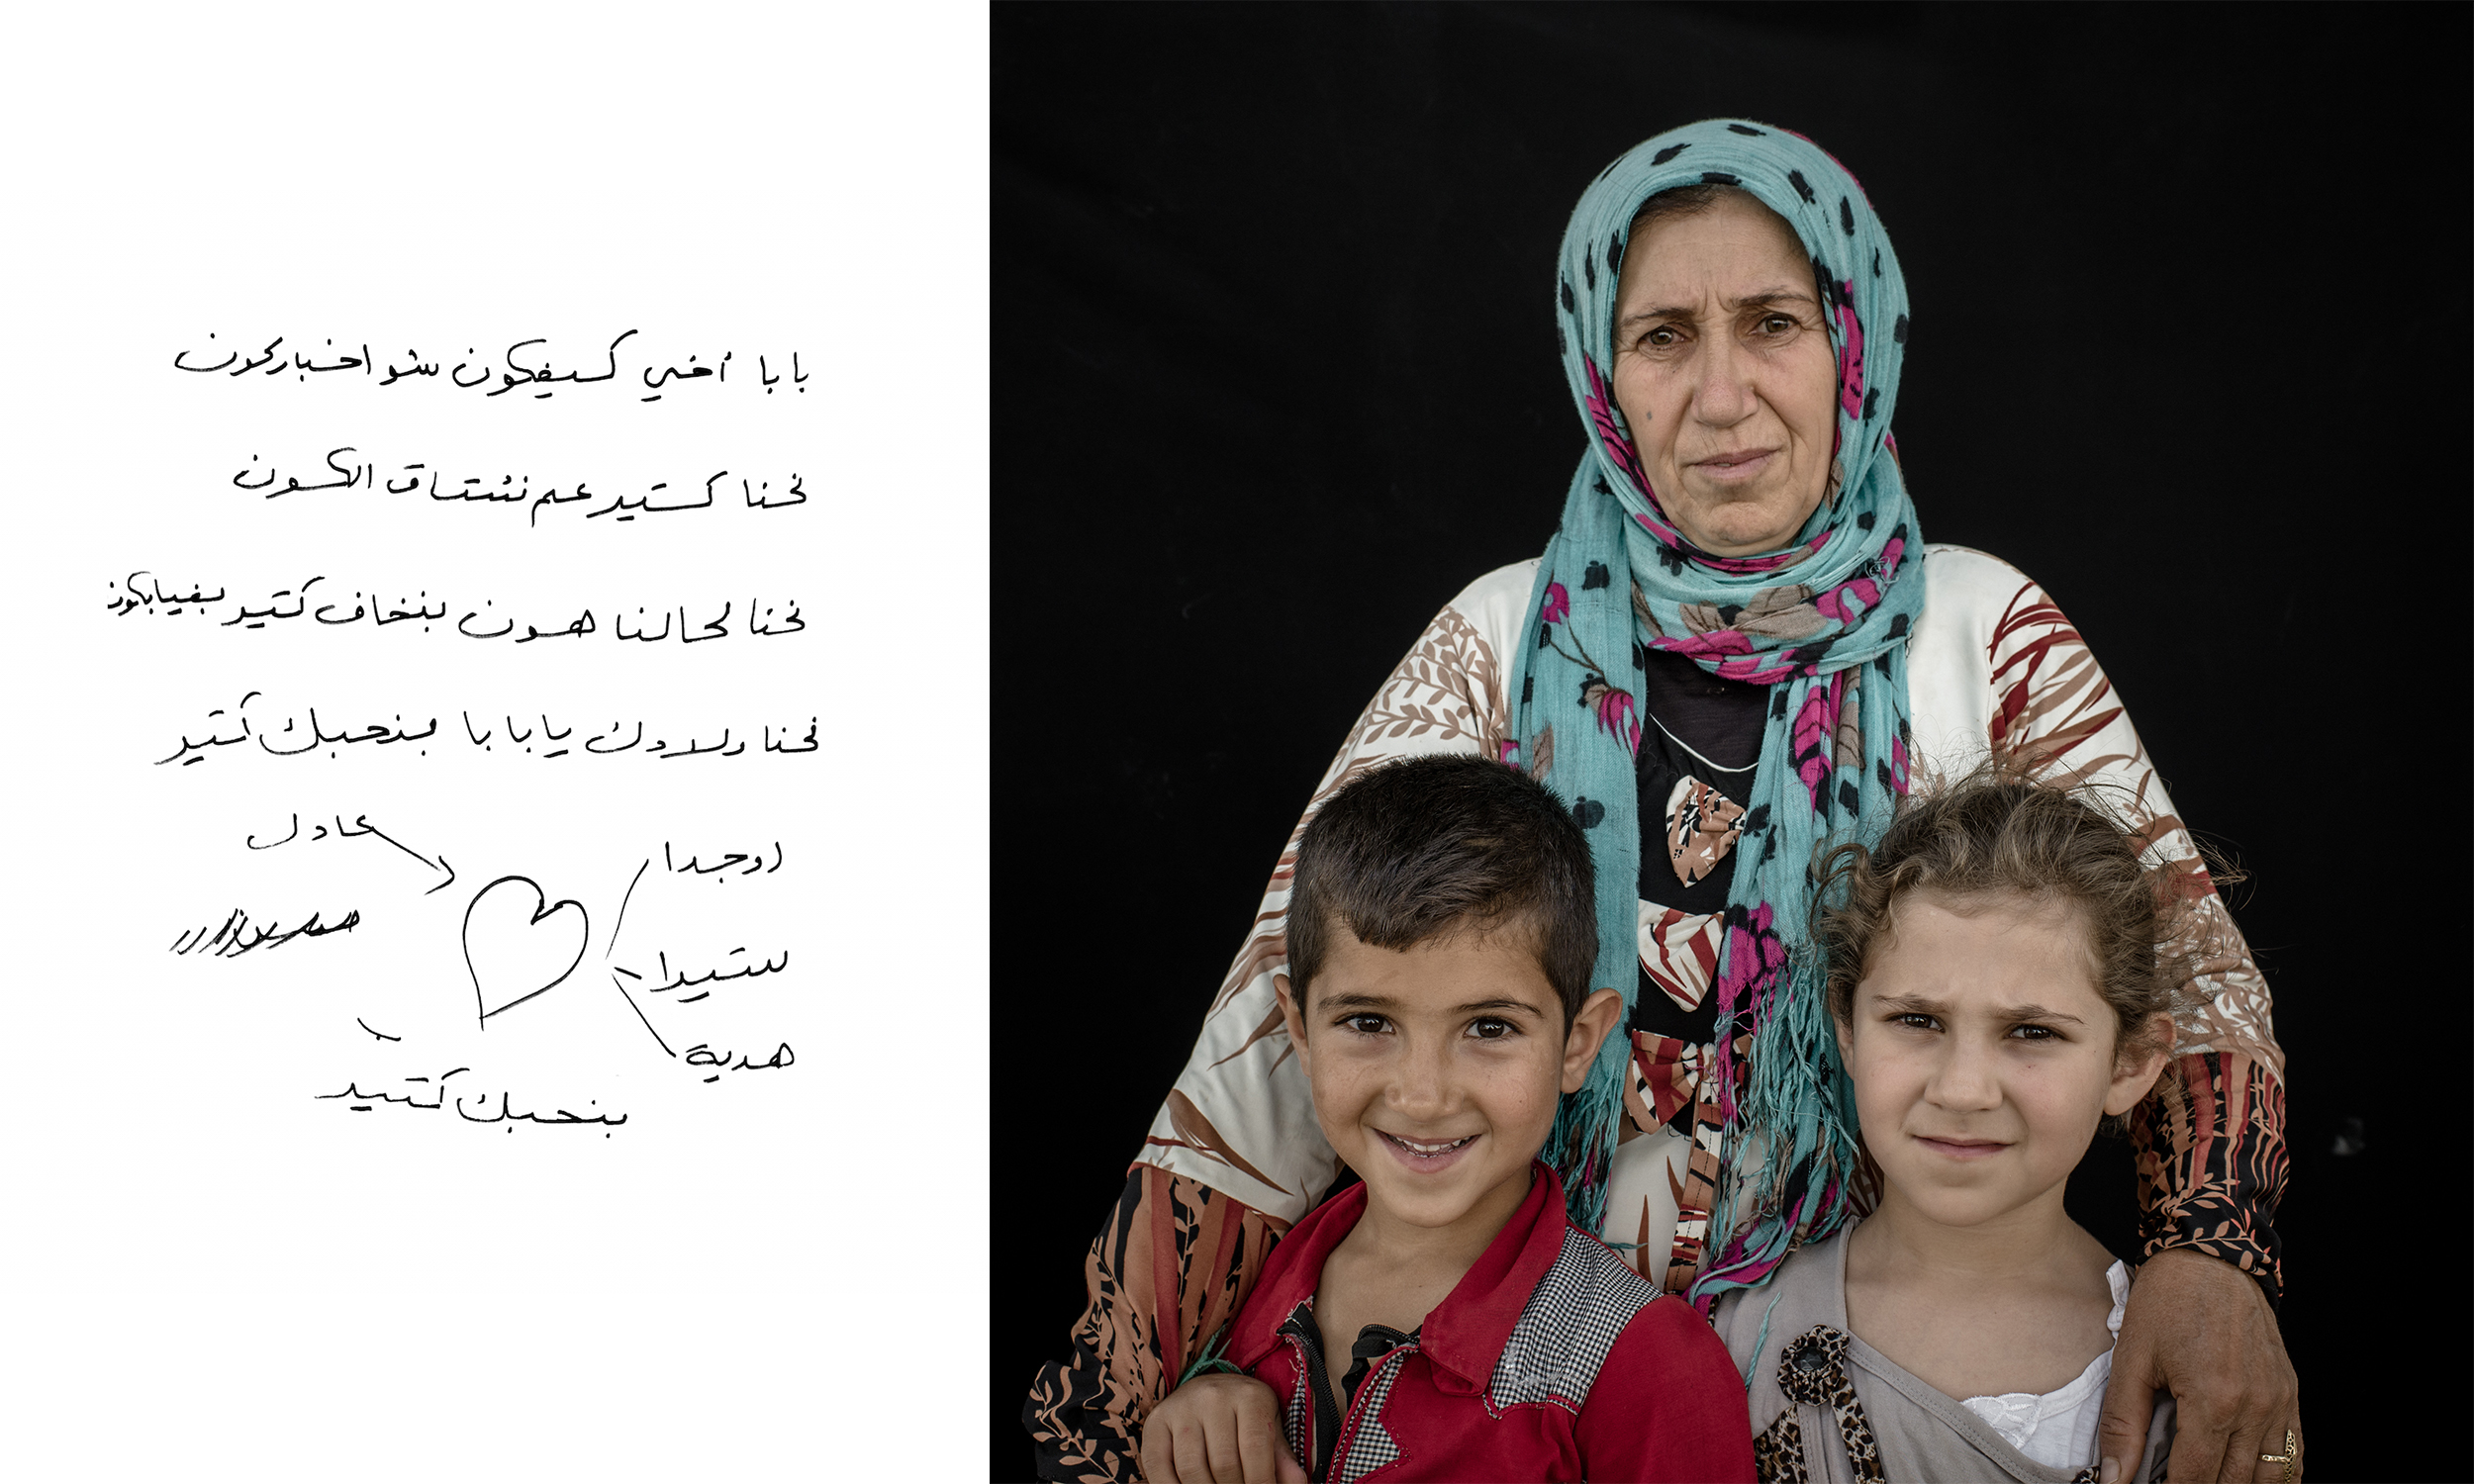 بابا أخي كيفكون شو اخباركون
نحنا كتير عم نشتاق الكون
نحنا لحالنا هون بنخاف كتير بغيابكون
نحنا ولادك يا بابا بنحبك كتير
عادل
اوجدا
ستيرا
هدية
بنحبك كتير